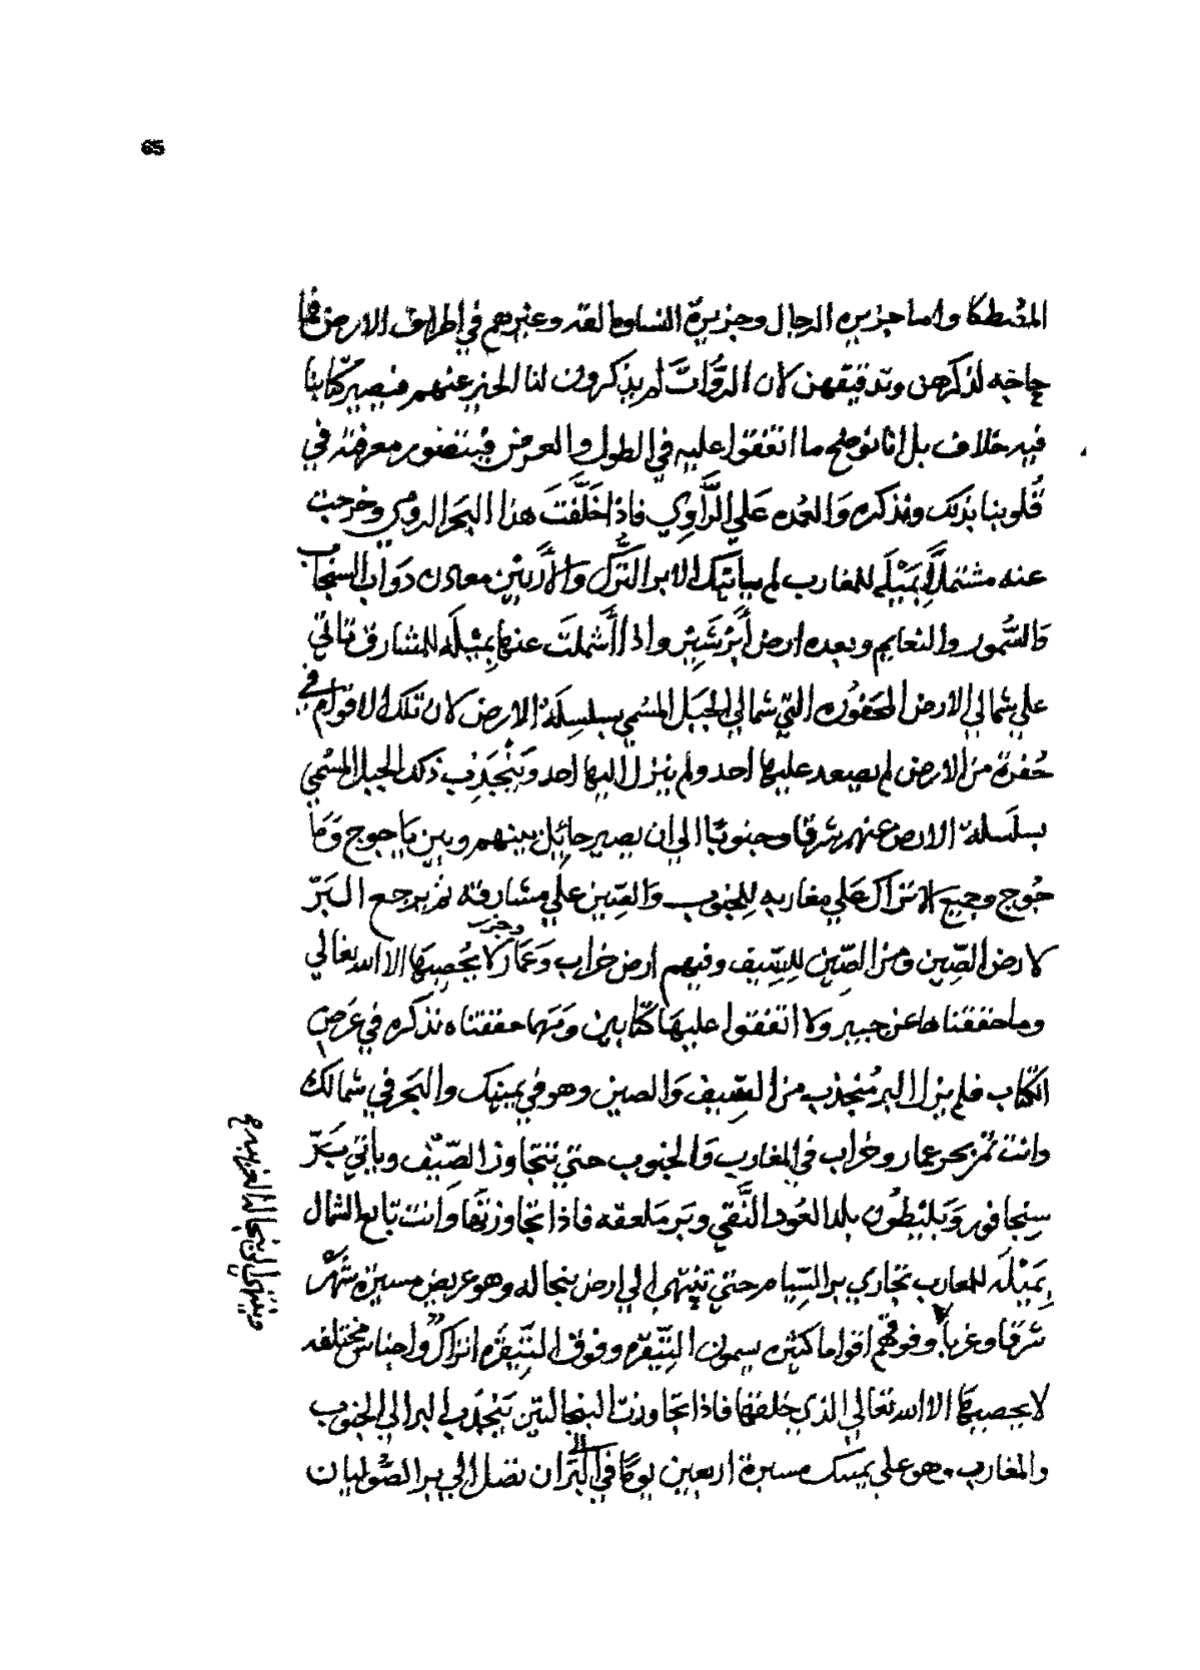 65
المصطكا واما جزيره الرجال وجزيرة النساوما لقه وغيرهم في اطراف الارض فما
حاجه لذكرهن وتدقيقهن لان الروات لم يذكرون لنا الخبر عنهم فيصير كتابنا
فيه خلاف بل اننا نوضح ما اتفقوا عليه في الطول والعرض فيتصور معرفته في
قلوبنا بذلك ونذكره والعهده علي الراوي فاذا خلفت هذا البحر الرومي وخرجت
عنه مشتملا بميله للمغارب لم ياتيك الا بر الترك والأربين معادن دواب السنجاب
والسمور والنعايم وبعده ارض واذا أشملت عنها بميله للمشارق تاتي
علي شمالي الارض المحفوره التي شمالي الجبل المسمي بسلسلة الارض لان تلك الاقوام في
حفرة من الارض لم يصعد عليها احد ولم ينزل اليها احد وينجذب ذلك الجبل المسمي
بسلسلة الارض عنهم شرقا وجنوبا الي ان يصير حايل بينهم وبين ياجوج وما
جوج وجميع الاتراك علي مغاربه للجنوب والصين علي مشارقه ثم يرجع البر
لارض الصين ومن الصين للسيف وفيهم ارض خراب وعمار لا يحصيها الا الله تعالي
وما حققناها عن خبير ولا اتفقوا عليها كتابين ومهما حققناه نذكره في عرض
الكتاب فلم يزل البر منجذب من السيف والصين وهو في يمينك والبحر في شمالك
وانت تمر بحر عمار وخراب في المغارب والجنوب حتي تتجاوز الصيف وياتي بر
سنجافور وبليطون بلد العود النقي وبر ملعقه فاذا تجاوزتها وانت تابع الشمال
بميله للمغارب تجاري بر السيام حتي تنتهي الي ارض بنجاله وهو عريض مسيرة شهر
شرقا وغربا وفوقهم اقواما كثيره يسمون التيقره وفوق التيقره اتراك واجناس مختلفه
لا يحصيها الا الله تعالي الذي خلقها فاذا تجاوزت البنجالتين ينجذب البر الي الجنوب
والمغارب وهو علي يمينك مسيرة اربعين يوما في البر الي ان تصل الي بر الصوليان
وينتهي الي بنجاله الغربيه